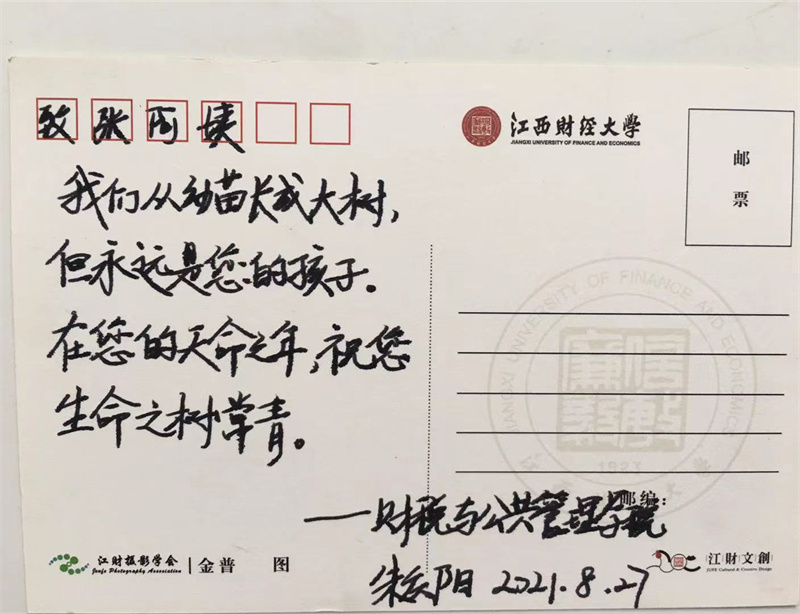 致张阿姨
江西财经大学
JIANGXI UNIVERSITY OF FINANCE AND ECONOMICS
邮
票
我们从幼苗长成大树，
但永远是您的孩子。
在您的天命之年，祝您
生命之树常青。
JIANGXI UNIVERSITY OF FINANCE AND ECONOMICS
1923
邮编：
——财税与公共管理学院
阳 2021.8.27
江财摄影学会
Jiangxi Photography Association
金普 图
江財文創
JUFE Cultural & Creative Design